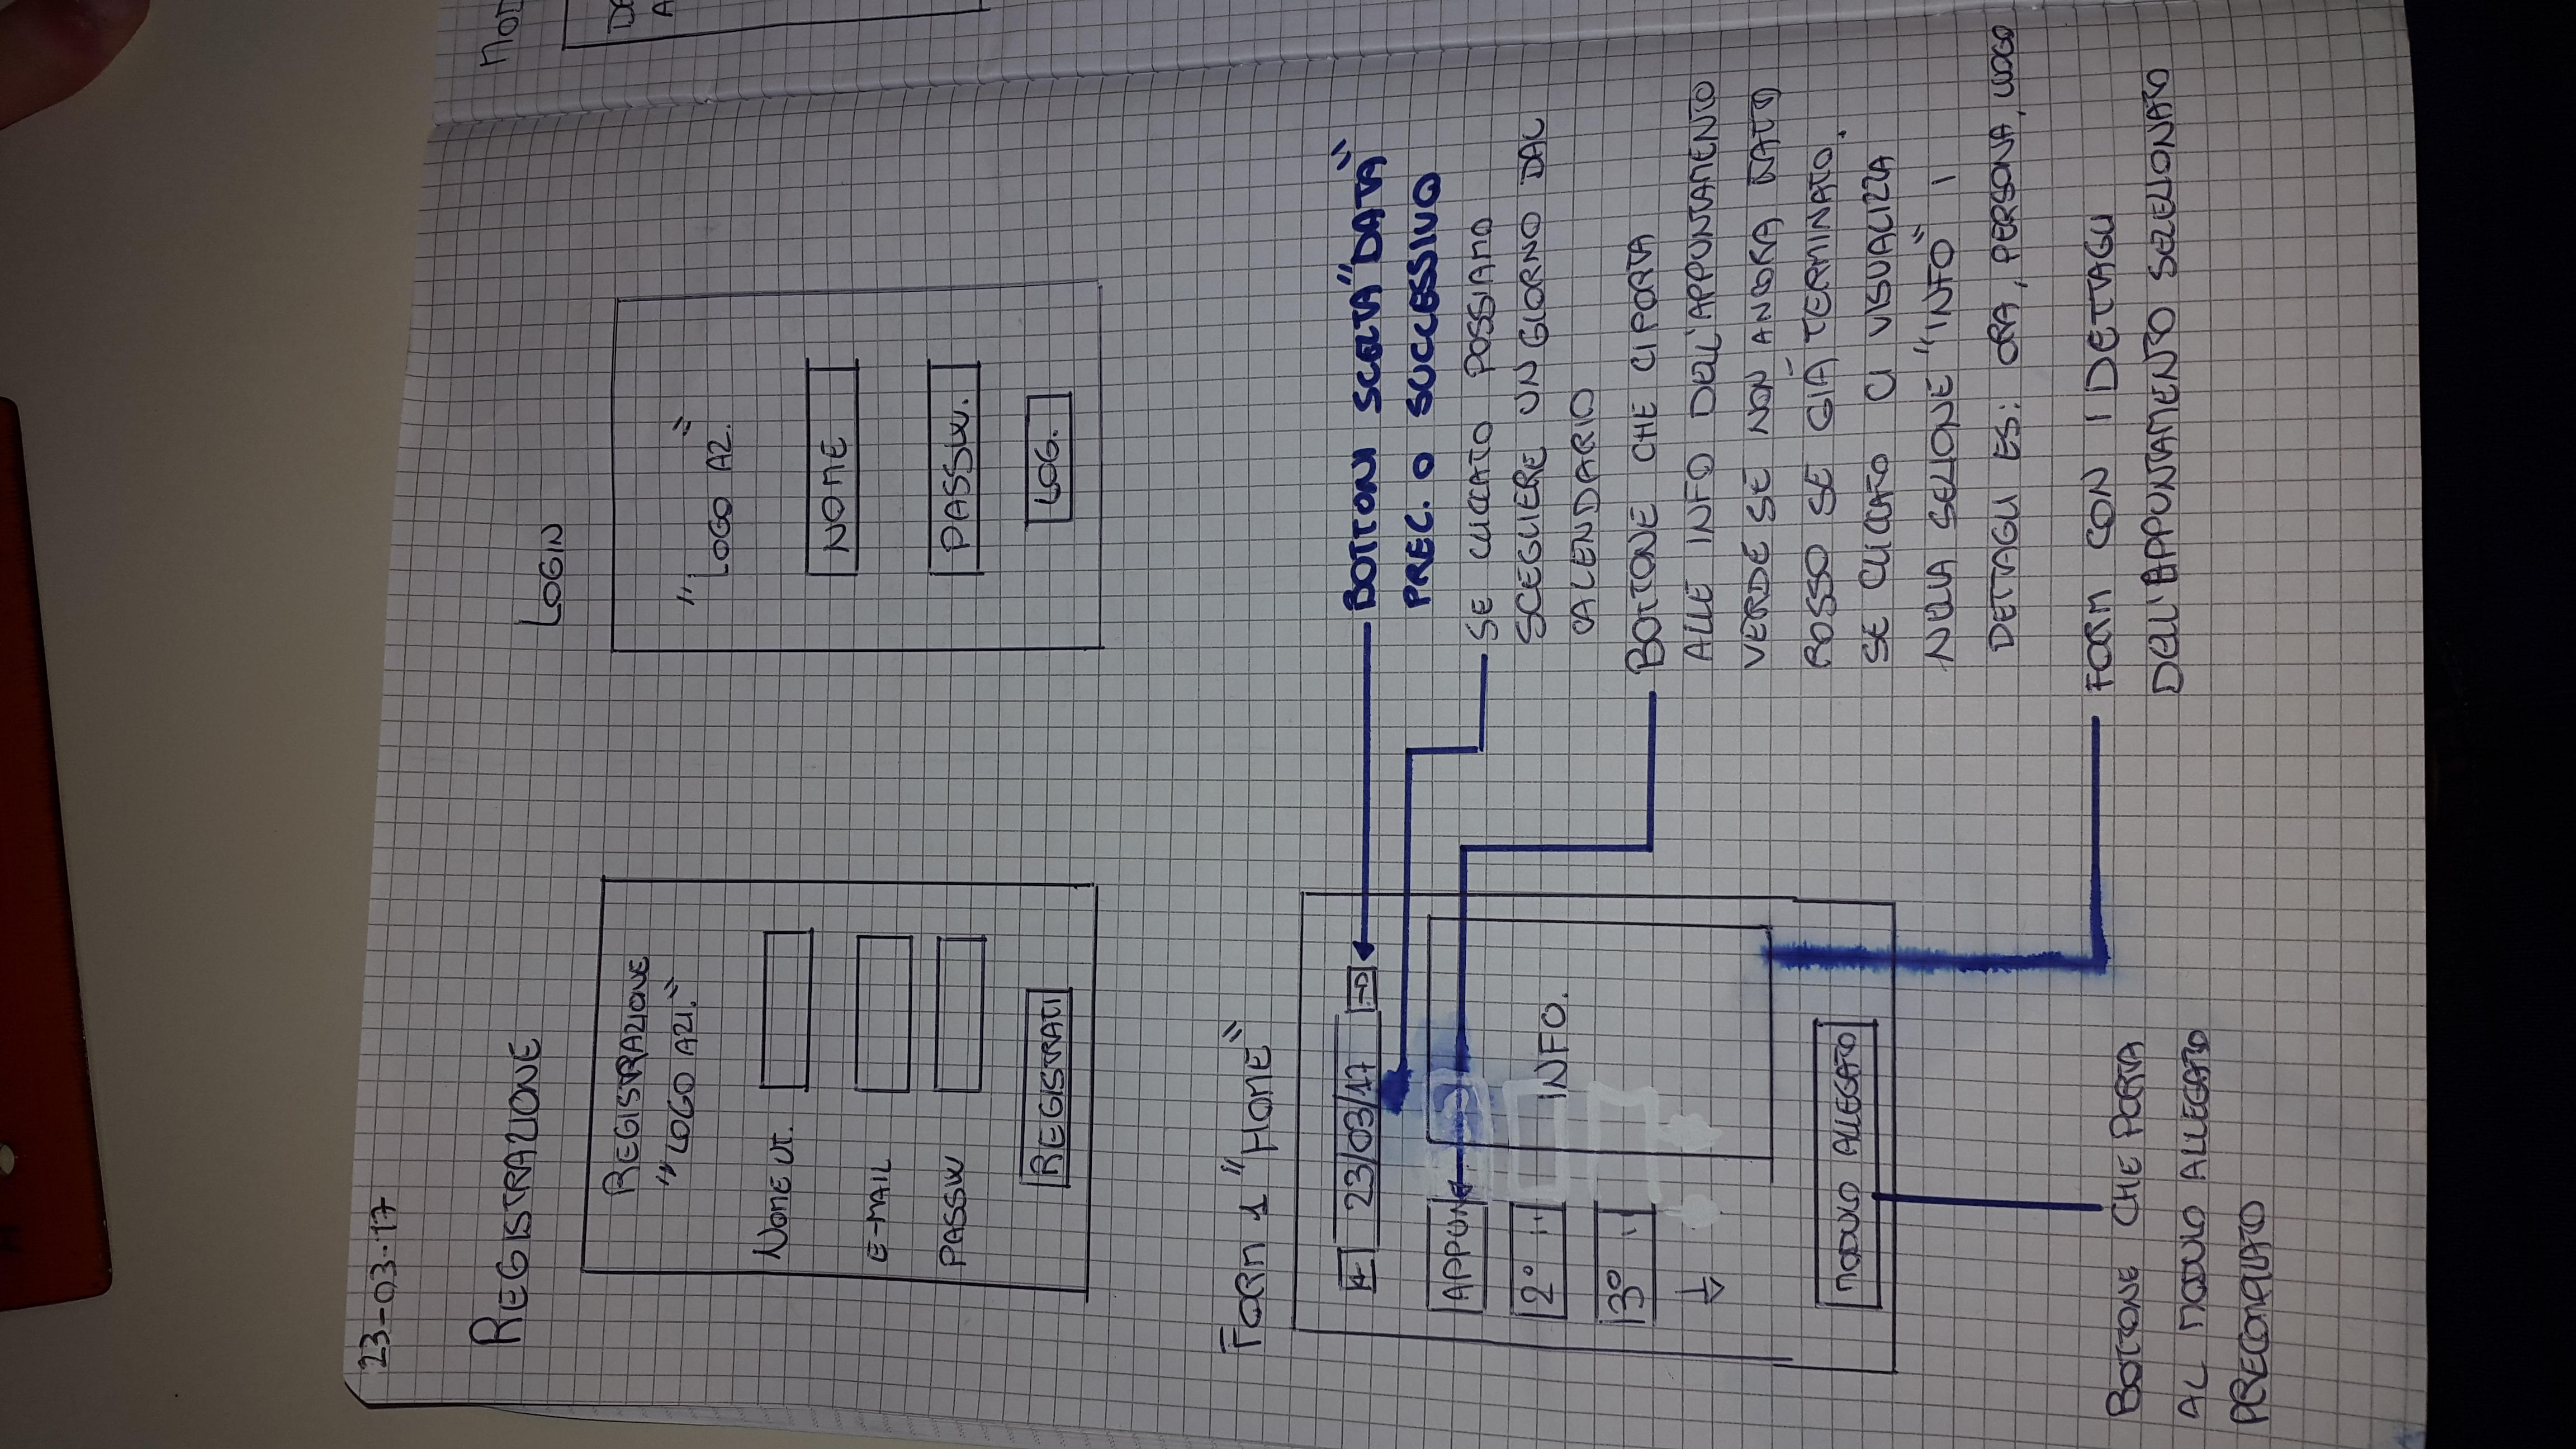 23-03-17
REGISTRAZIONE
LOGIN
REGISTRAZIONE
"LOGO AZI."
NOME UT.
E-MAIL
PASSW
REGISTRATI
"LOGO AZ."
NOME
PASSW.
LOG.
FORM 1 "HOME"
23/03/17
APPUN
2° "
3° "
INFO.
MODULO ALLEGATO
BOTTONI SCELTA "DATA"
PREC. O SUCCESSIVO
SE CLICCATO POSSIAMO
SCEGLIERE UN GIORNO DAL
CALENDARIO
BOTTONE CHE CI PORTA
ALLE INFO DELL'APPUNTAMENTO
VERDE SE NON ANCORA
ROSSO SE GIÀ TERMINATO.
SE CLICCATO CI VISUALIZZA
NELLA SEZIONE "INFO" I
DETTAGLI ES: ORA, PERSONA, LUOGO
FORM CON I DETTAGLI
DELL'APPUNTAMENTO SELEZIONATO
BOTTONE CHE PORTA
AL MODULO ALLEGATO
PRECOMPILATO